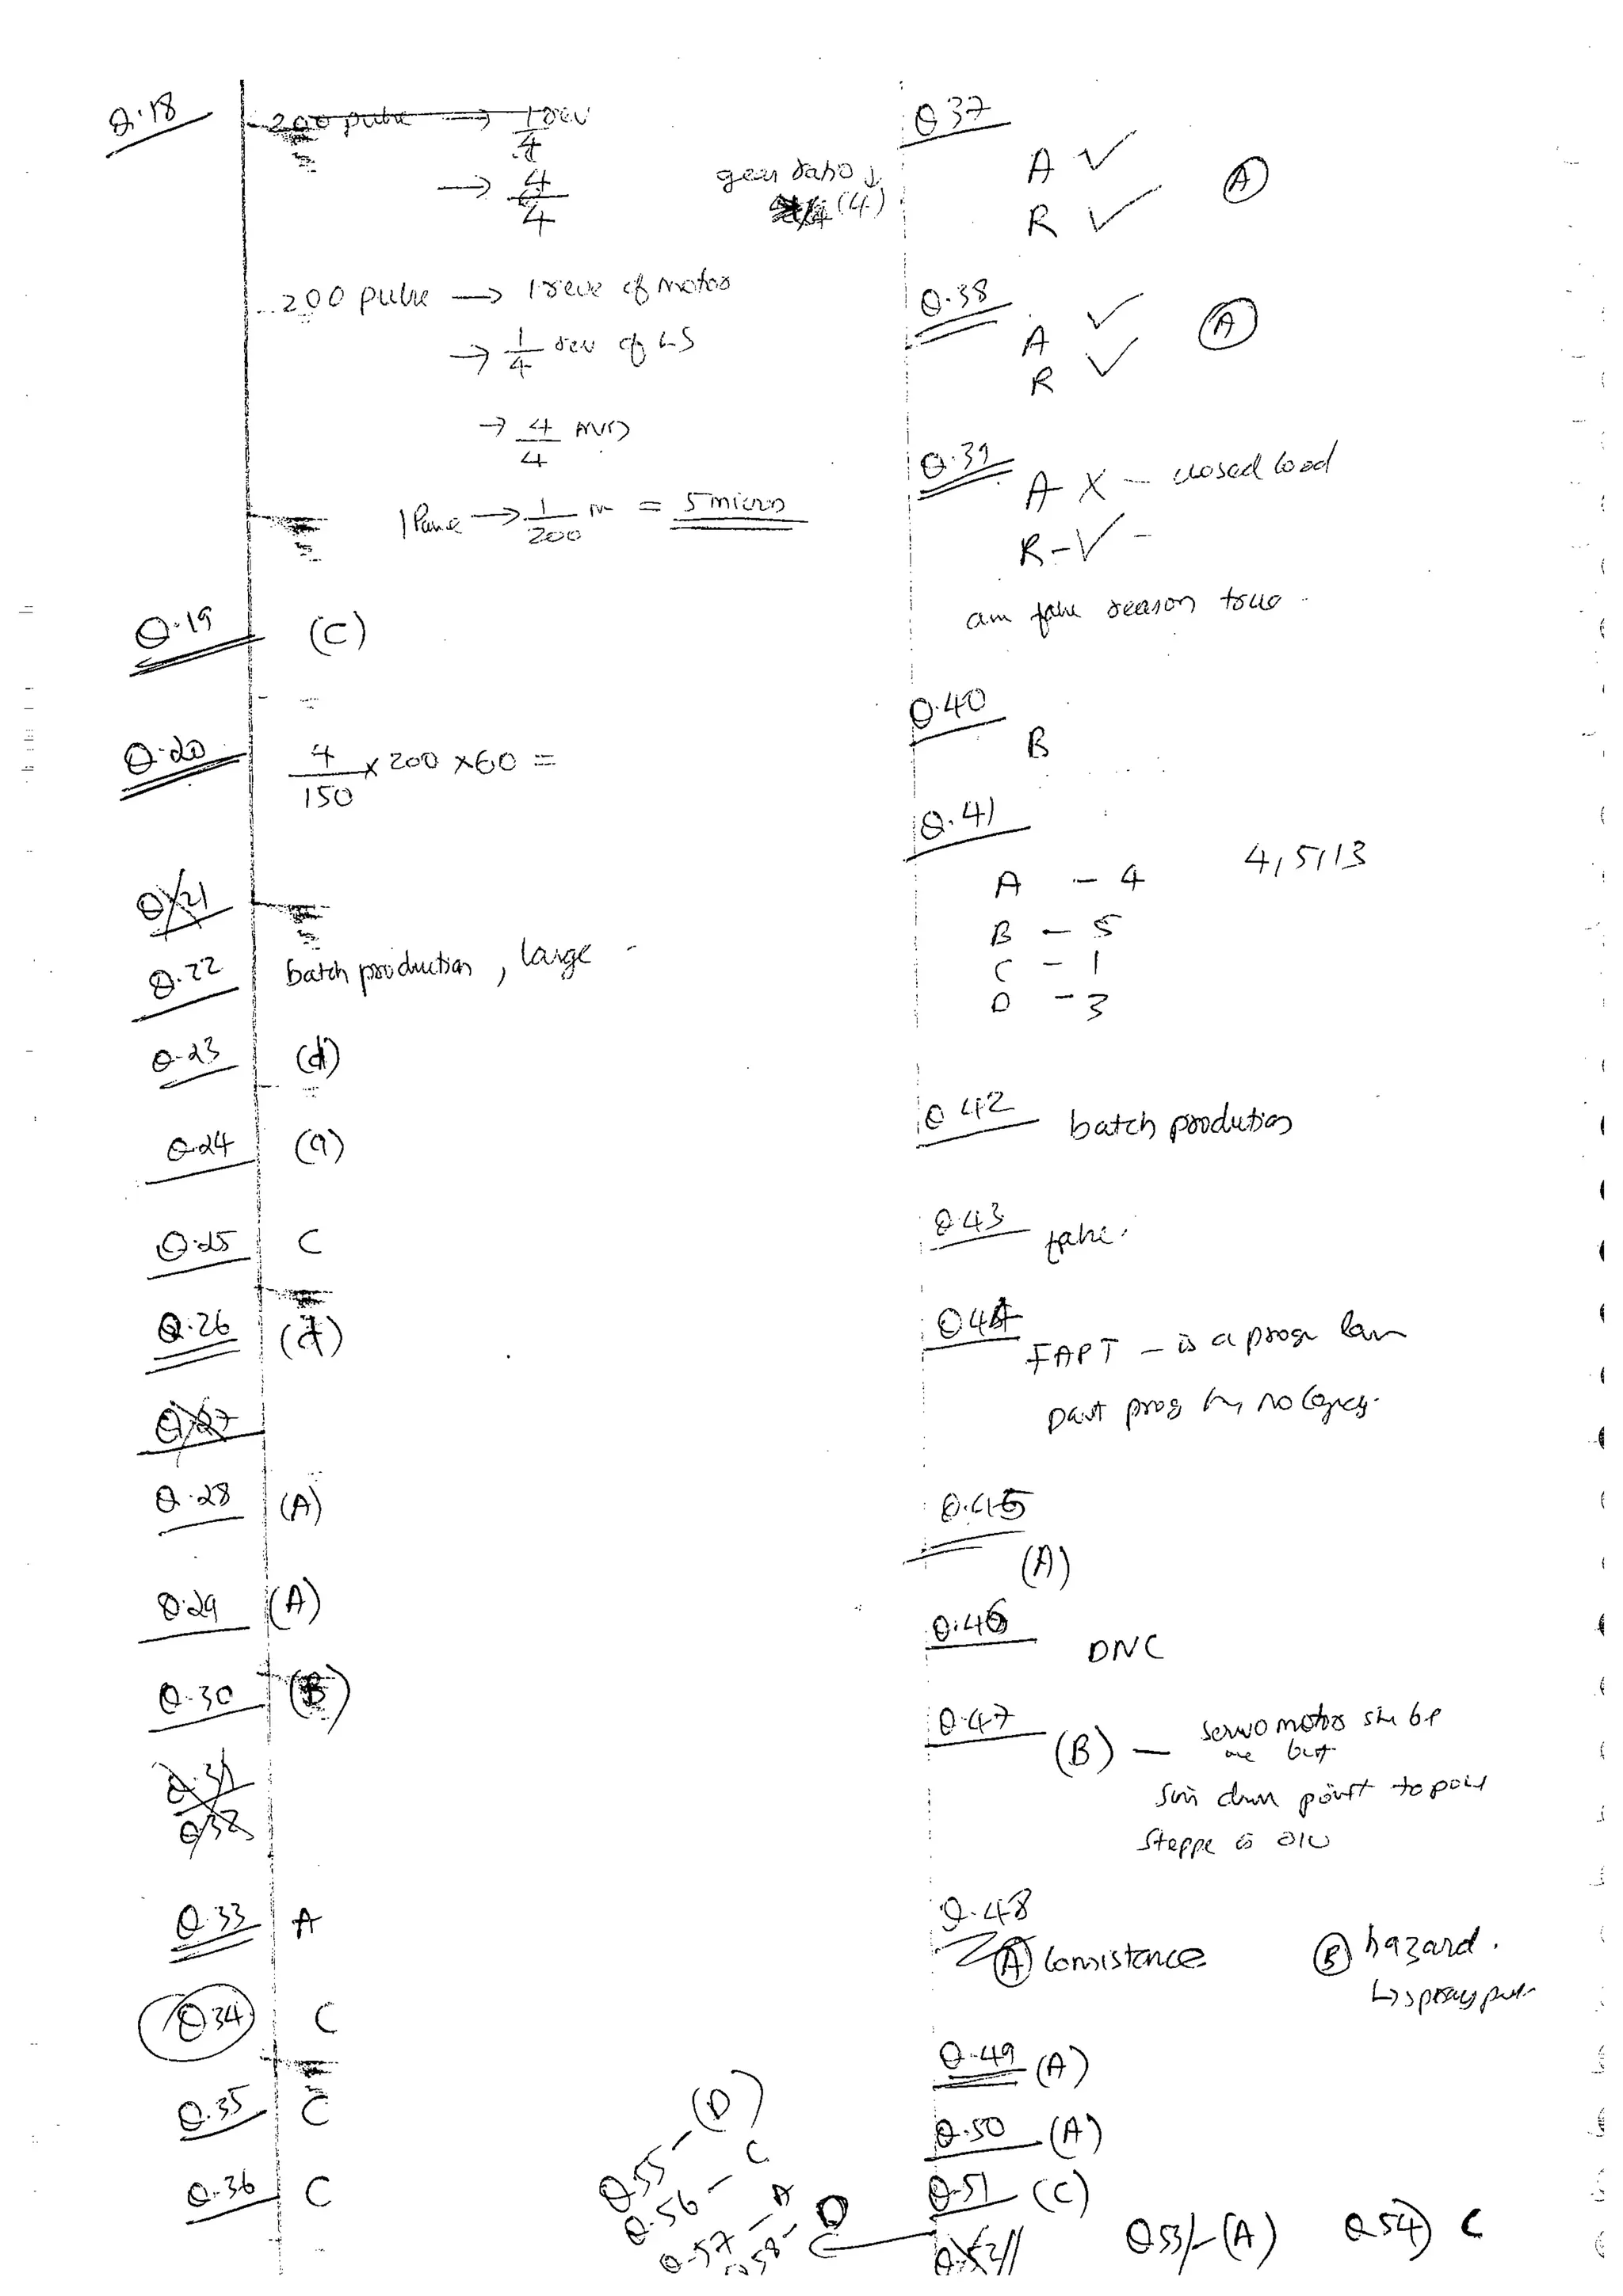 Q.18
200 pulse → 1 rev
4
→ 4
4
gear ratio ↓
(4)
200 pulse → 1 reve of motor
→ 1/4 rev of LS
→ 4/4 mm
1 Pulse → 1/200 m = 5 micron
Q.19 (C)
Q.20 4/150 × 200 × 60 =
Q.21
Q.22 batch production, large
Q.23 (d)
Q.24 (a)
Q.25 C
Q.26
Q.27
Q.28 (A)
Q.29 (A)
Q.30 (B)
Q.31
Q.32
Q.33 A
Q34 C
Q.35 C
Q.36 C
Q 37
A ✓
R ✓
(A)
Q.38
A ✓
R ✓
(A)
Q.39
A X - closed
R - ✓ -
reason true
Q.40
B
Q.41
4,5,1,3
A - 4
B - 5
C - 1
D - 3
Q 42 batch production
Q.43 false.
Q 44
FAPT - is a progr
part prog
Q.45
(A)
Q.46
DNC
Q.47
(B) - servo motor
point to point
Q.48
(A) consistance
(B) hazard.
↳ spray
Q.49 (A)
Q.50 (A)
Q.51 (C)
Q.52
Q53 - (A) Q54) C
Q.55 - (D)
Q.56 - C
Q.57 - A
Q.58 - D